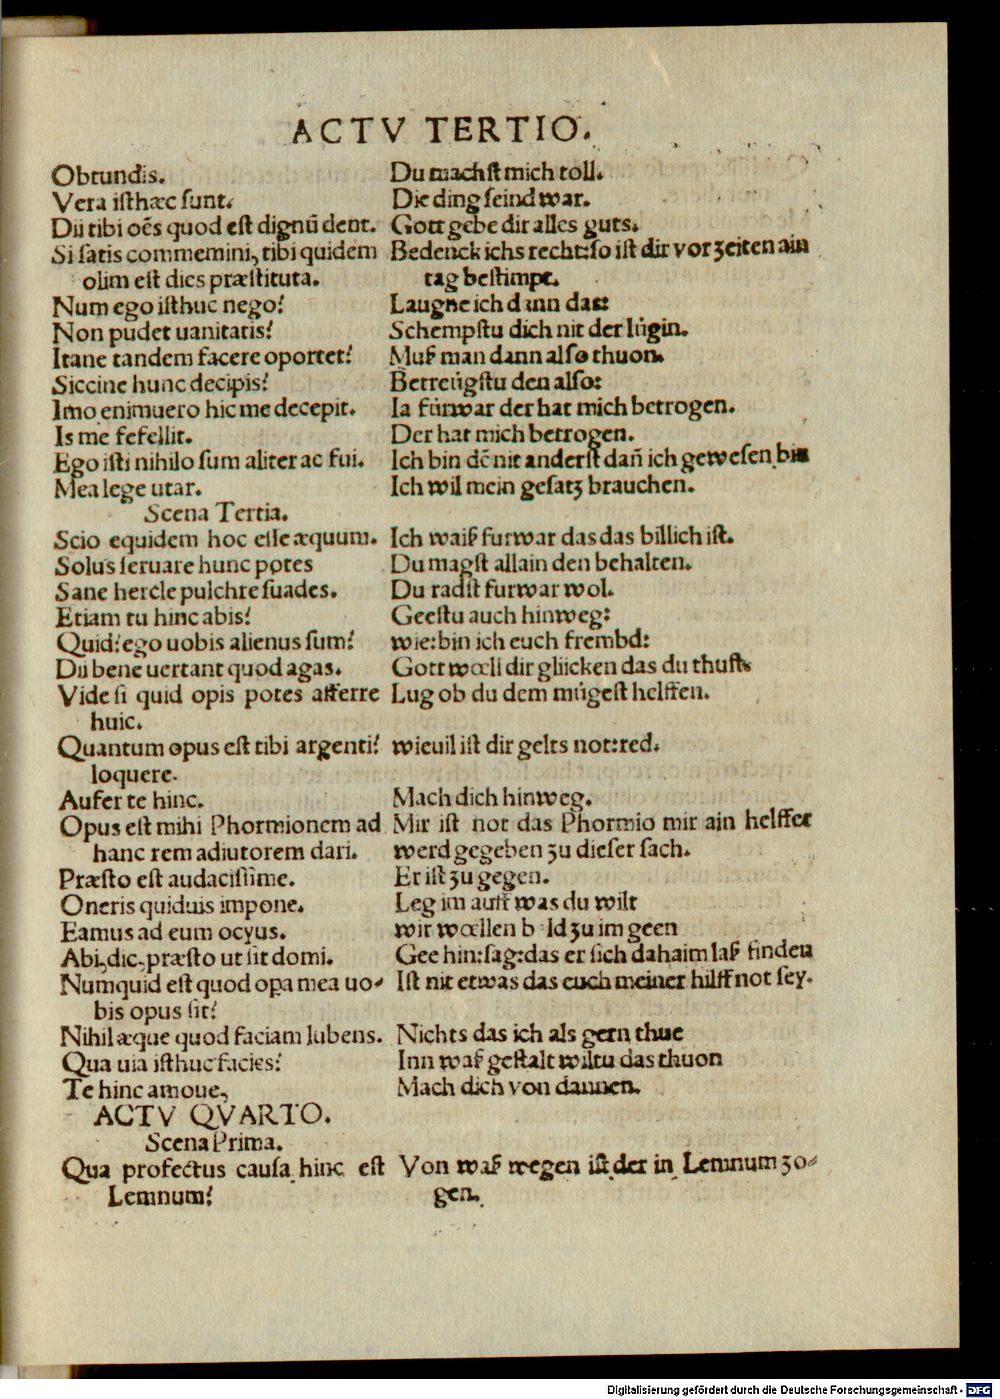 ACTV TERTIO.
Obtundis. Du machst mich toll.
Vera isthæc sunt. Die ding seind war.
Dii tibi oēs quod est dignū dent. Gott gebe dir alles guts.
Si satis commemini, tibi quidem Bedenck ichs recht:so ist dir vor zeiten ain
olim est dies præstituta. tag bestimpt.
Num ego isthuc nego? Laugne ich dann das:
Non pudet uanitatis? Schempstu dich nit der lůgin.
Itane tandem facere oportet? Muß man dann also thuon.
Siccine hunc decipis? Betreůgstu den also:
Imo enimuero hic me decepit. Ia fürwar der hat mich betrogen.
Is me fefellit. Der hat mich betrogen.
Ego isti nihilo sum aliter ac fui. Ich bin dē nit anderst dañ ich gewesen bin
Mea lege utar. Ich wil mein gesatz brauchen.
Scena Tertia.
Scio equidem hoc esse æquum. Ich waiß furwar das das billich ist.
Solus seruare hunc potes Du magst allain den behalten.
Sane hercle pulchre suades. Du radst furwar wol.
Etiam tu hinc abis? Geestu auch hinweg:
Quid? ego uobis alienus sum? wie:bin ich euch frembd:
Dii bene uertant quod agas. Gott wœll dir gliicken das du thust.
Vide si quid opis potes afferre Lug ob du dem můgest helffen.
huic.
Quantum opus est tibi argenti? wieuil ist dir gelts not:red.
loquere.
Aufer te hinc. Mach dich hinweg.
Opus est mihi Phormionem ad Mir ist not das Phormio mir ain helffer
hanc rem adiutorem dari. werd gegeben zu dieser sach.
Præsto est audacissime. Er ist zu gegen.
Oneris quiduis impone. Leg im auff was du wilt
Eamus ad eum ocyus. wir wœllen b ld zu im geen
Abi, dic, præsto ut sit domi. Gee hin:sag:das er sich dahaim laß finden
Numquid est quod opa mea uo- Ist nit etwas das euch meiner hilff not sey.
bis opus sit?
Nihil æque quod faciam lubens. Nichts das ich als gern thue
Qua uia isthuc facies? Inn waß gestalt wiltu das thuon
Te hinc amoue, Mach dich von dannen.
ACTV QVARTO.
Scena Prima.
Qua profectus causa hinc est Von waß wegen ist der in Lemnum zo-
Lemnum? gen.
Digitalisierung gefördert durch die Deutsche Forschungsgemeinschaft - DFG